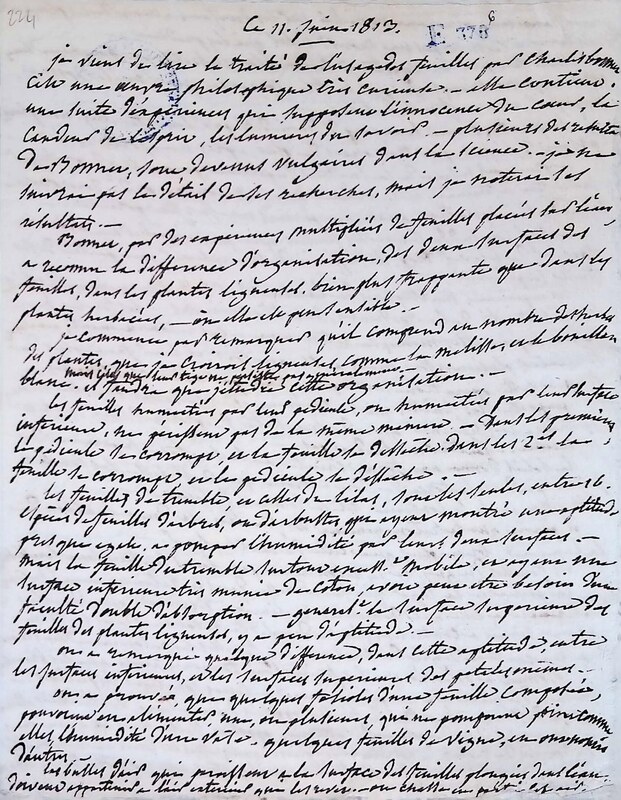 224
Ce 11. juin 1813.
E 378 6
je viens de lire le traité de l'usage des feuilles par Charles bonnet
C'est une œuvre philosophique très curieuse. - elle contient
une suite d'expériences qui supposent l'innocence du cœur, la
Candeur de l'esprit, les lumières du savoir. - plusieurs des résultats
de Bonnet, sont devenus vulgaires dans la science. - je ne
suivrai pas le détail de ses recherches, mais je noterai les
résultats. -
Bonnet, par des expériences multipliées de feuilles placées sur l'eau
a reconnu la différence d'organisation, des deux surfaces des
feuilles, dans les plantes ligneuses, bien plus frappante que dans les
plantes herbacées, - où elle est peu sensible. -
je commence par remarquer qu'il comprend au nombre des herbes
des plantes, que je croirois ligneuses, comme la melisse, et le bouillon
mais
blanc. il faudra que j'étudie cette organisation. -
les feuilles humectées par leur pédicule, ou humectées par leur surface
inférieure, ne périssent pas de la même manière. - Dans les premières
le pédicule se corrompt, et la feuille se dessèche. dans les 2des la
feuille se corrompt, et le pédicule se dessèche. -
les feuilles de tremble, et celles de lilas, sont les seules, entre 16
espèces de feuilles d'arbres, ou d'arbustes qui ayent montré une aptitude
presque égale, a pomper l'humidité par leurs deux surfaces. -
mais la feuille du tremble surtout mobile, et ayant une
surface inférieure très munie de coton, avoit peut etre besoin d'une
faculté double d'absorption. - general.t la surface supérieure des
feuilles des plantes ligneuses, y a peu d'aptitude. -
on a remarqué quelque différence, dans cette aptitude, entre
les surfaces inférieures, et les surfaces supérieures des petales mêmes. -
on a prouvé que quelques folioles d'une feuille composée,
pouvoient en alimenter une, ou plusieurs, qui ne pompoient point comme
elles, l'humidité d'un vase. quelques feuilles de vigne, en ont nourri
d'autres.
les bulles d'air qui paroissent a la surface des feuilles plongées dans l'eau,
doivent appartenir a l'air extérieur